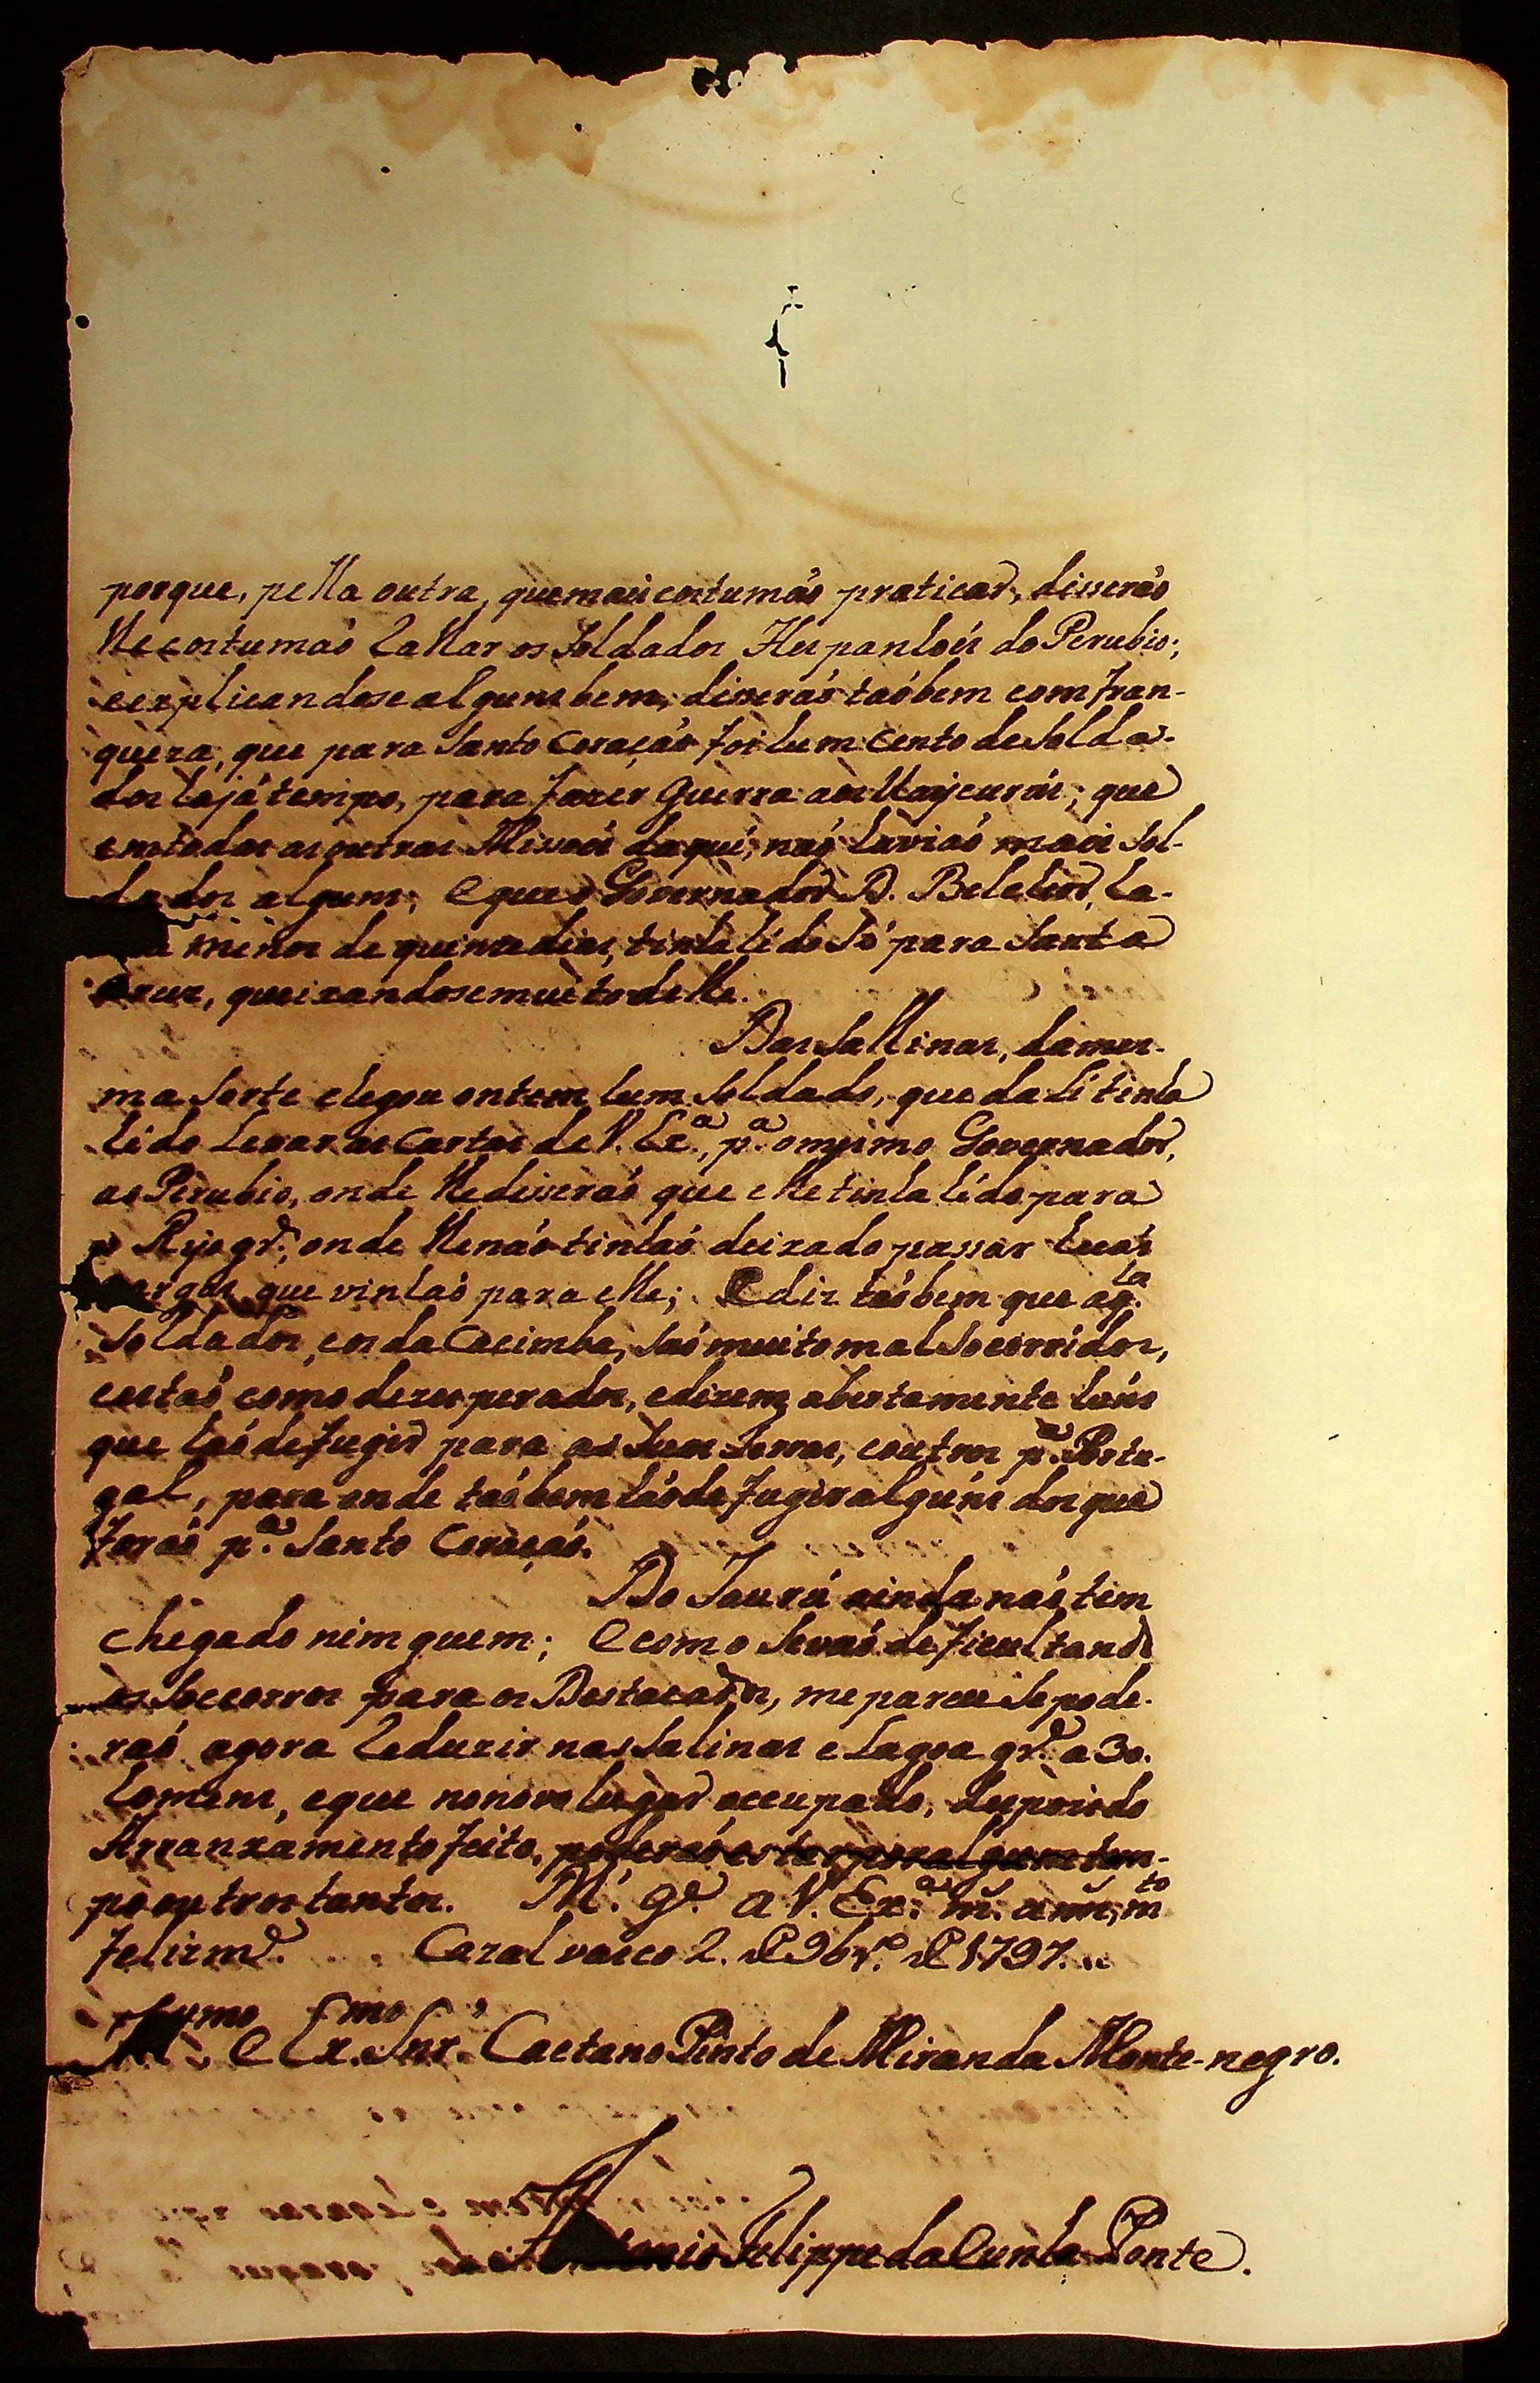 porque, pella outra, que mais costumaõ praticar, disseraõ
lhe costumaõ ralhar os Soldados Hespanhoes do Perubio;
e explicandose alguns bem, disseraõ taõbem com fran-
queza, que para Santo Coraçaõ foi hum cento de Solda-
dos haja tempo, para fazer Guerra aos Uaycurús; que
em todas as outras Missoēs daqui, naõ haviaõ mais Sol-
dados alguns; e que o Governador D. Belchior, ha-
menos de quinze dias, tinha hido Só para Santa
Cruz, queixandose muito delle.
Das Sallinas, da mes-
ma Sorte chegou ontem hum Soldado, que dali tinha
hido Levar as Cartas de V. Ex.ª, p.ª o mesmo Governador,
ao Perubio, onde lhe disseraõ que elle tinha hido para
o Rijo gr.de, onde lhe naõ tinhaõ deixado passar
cargas que vinhaõ para elle; e diz taõbem que aq.la
Soldados, e os da Cacimba, saõ muito mal Socorridos,
e estaõ como dezesperados, e dizem abertamente huns
que haõ de fugir para as Suas terras, e outros p.ª Portu-
gal, para onde taõbem haõ de fugir alguns dos que
foraõ p.ª Santo Coraçaõ.
Do Jaurú ainda naõ tem
chegado nimguem; e como Se vaõ deficultando
os Soccorros para os Destacados, me parece Se pode-
raõ agora reduzir nas Salinas e Lagoa gr.de a 30.
homens, e que no novo lugar occupado, depois do
Arranxamento feito, poderaõ estar por algum tem-
po outros tantos. N.S. g.de a V. Ex.ª m.s ann.s m.to
felizm.e. Cazalvasco 2. de 9br.o de 1797.
Ill.mo e Ex.mo Snr.' Caetano Pinto de Miranda Monte-negro.
Antonio Felippe da Cunha Ponte.